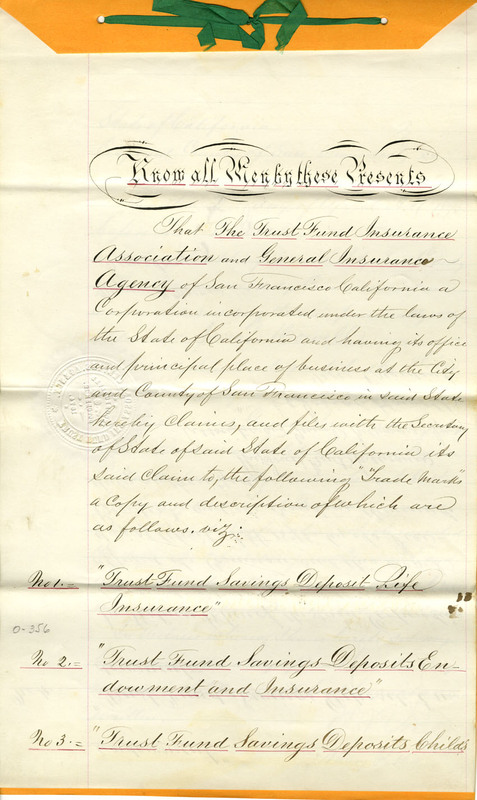 Know all Men by these Presents
That The Trust Fund Insurance
Association and General Insurance
Agency of San Francisco California a
Corporation incorporated under the laws of
the State of California and having its office
and principal place of business at the City
and County of San Francisco in said State
hereby Claims, and files with the Secretary
of State of said State of California its
said Claim to, the following "Trade Marks"
a Copy and description of which are
as follows. viz:
No 1.= "Trust Fund Savings Deposit Life
Insurance"
0-356
No 2.= "Trust Fund Savings Deposits En-
dowment and Insurance"
No 3.= "Trust Fund Savings Deposits Childs